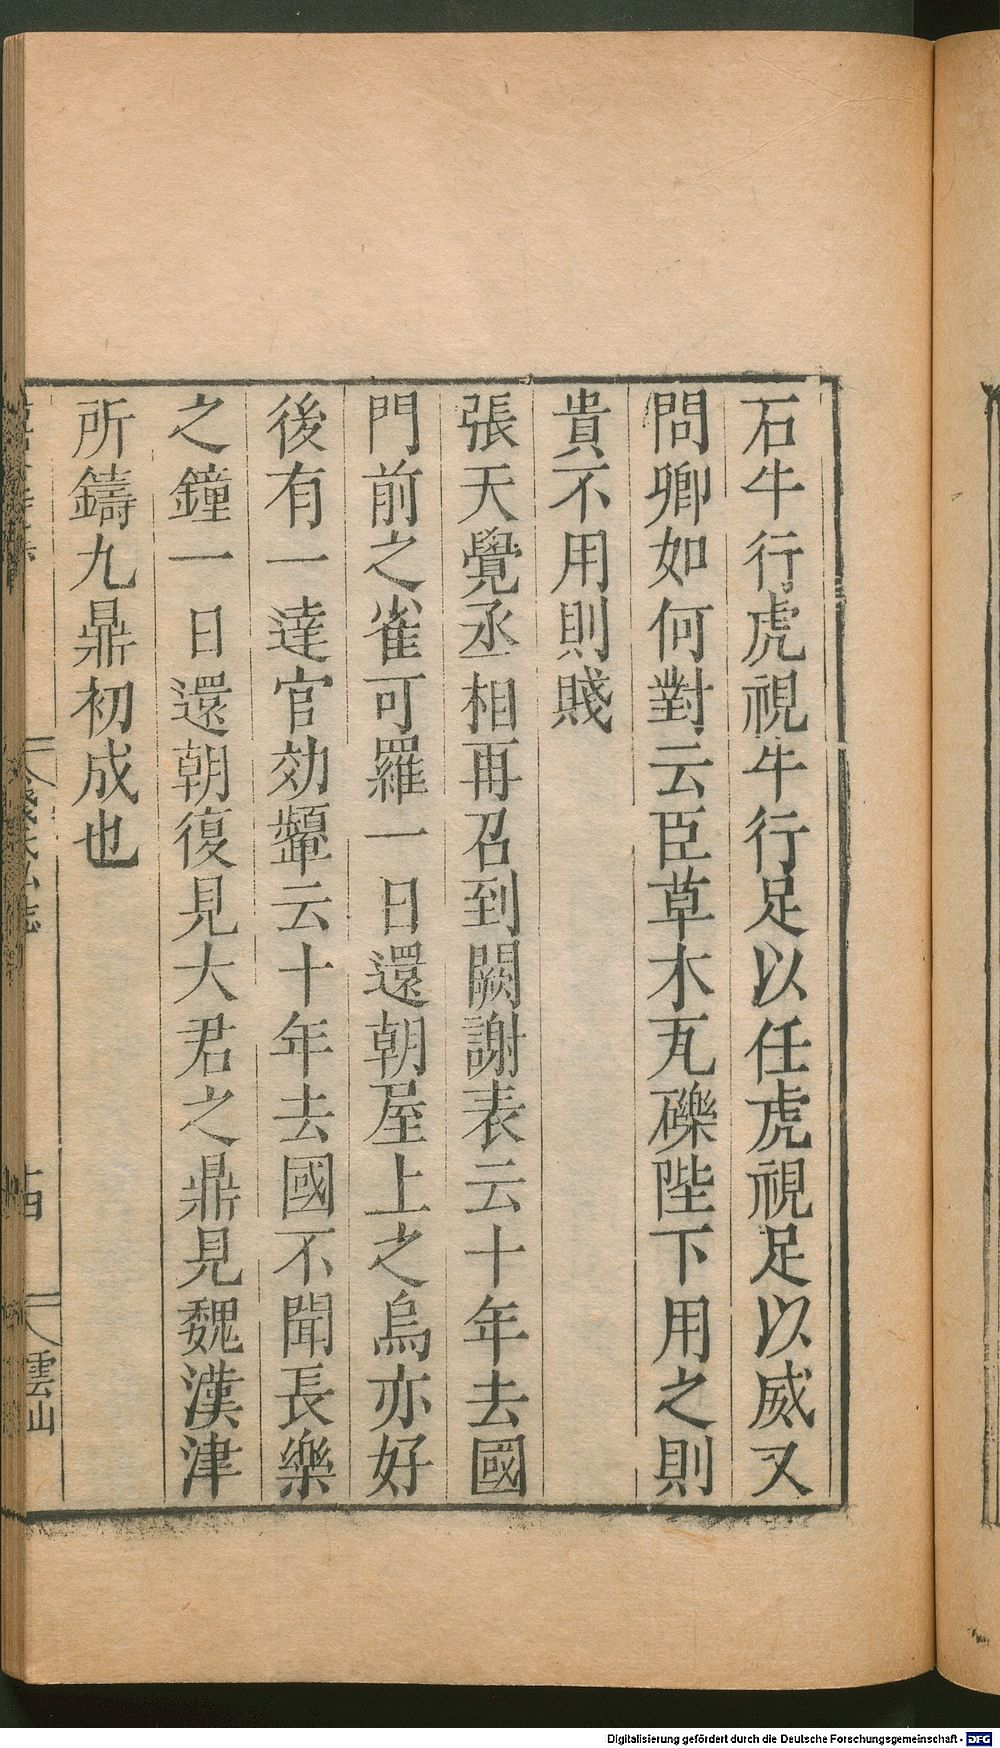 石牛行虎視牛行足以任虎視足以威又
問卿如何對云臣草木瓦礫陛下用之則
貴不用則賤
張天覺丞相再召到闕謝表云十年去國
門前之雀可羅一日還朝屋上之烏亦好
後有一達官効顰云十年去國不聞長樂
之鐘一日還朝復見大君之鼎見魏漢津
所鑄九鼎初成也
雲山
Digitalisierung gefördert durch die Deutsche Forschungsgemeinschaft - DFG